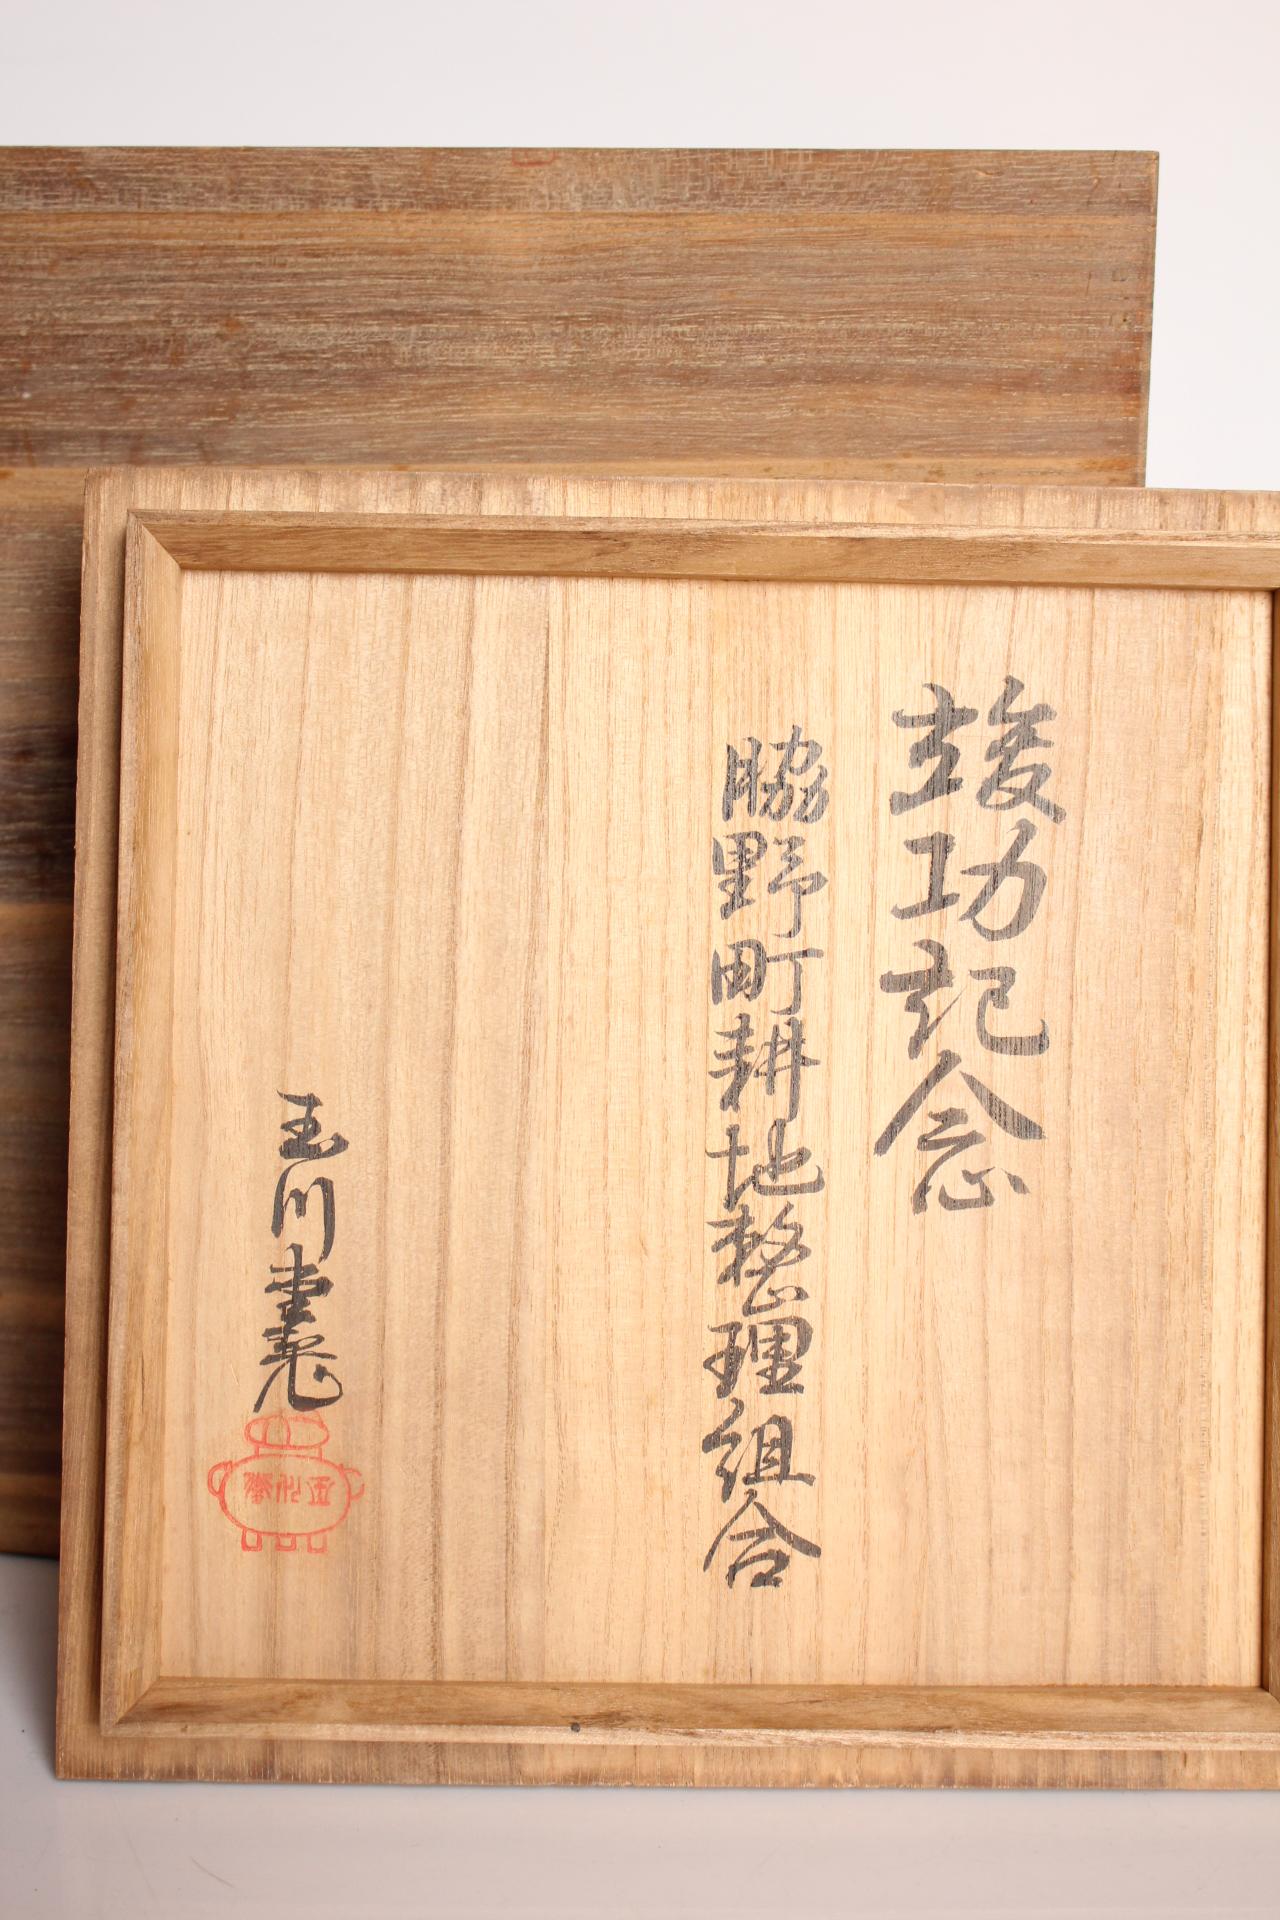 竣功記念
脇野町耕地整理組合
玉川堂
玉川堂